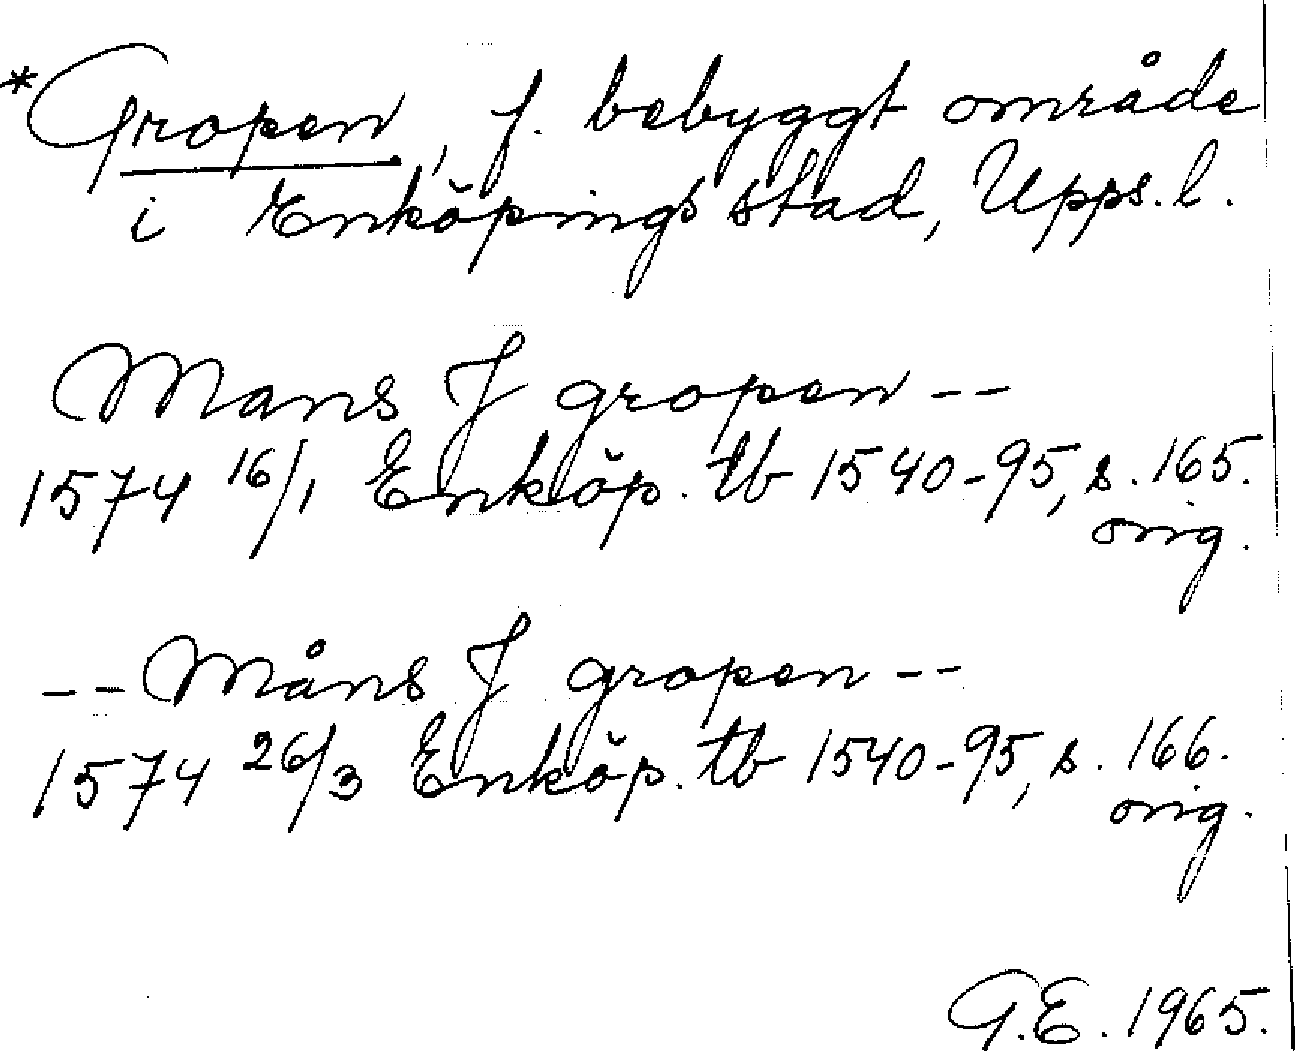 *Gropen, f. bebyggt område
i Enköpings stad, Upps. l.
Mans J gropen --
1574 16/1 Enköp. tb 1540-95, s. 165.
orig.
-- Måns J gropen --
1574 26/3 Enköp. tb 1540-95, s. 166.
orig.
G.E. 1965.